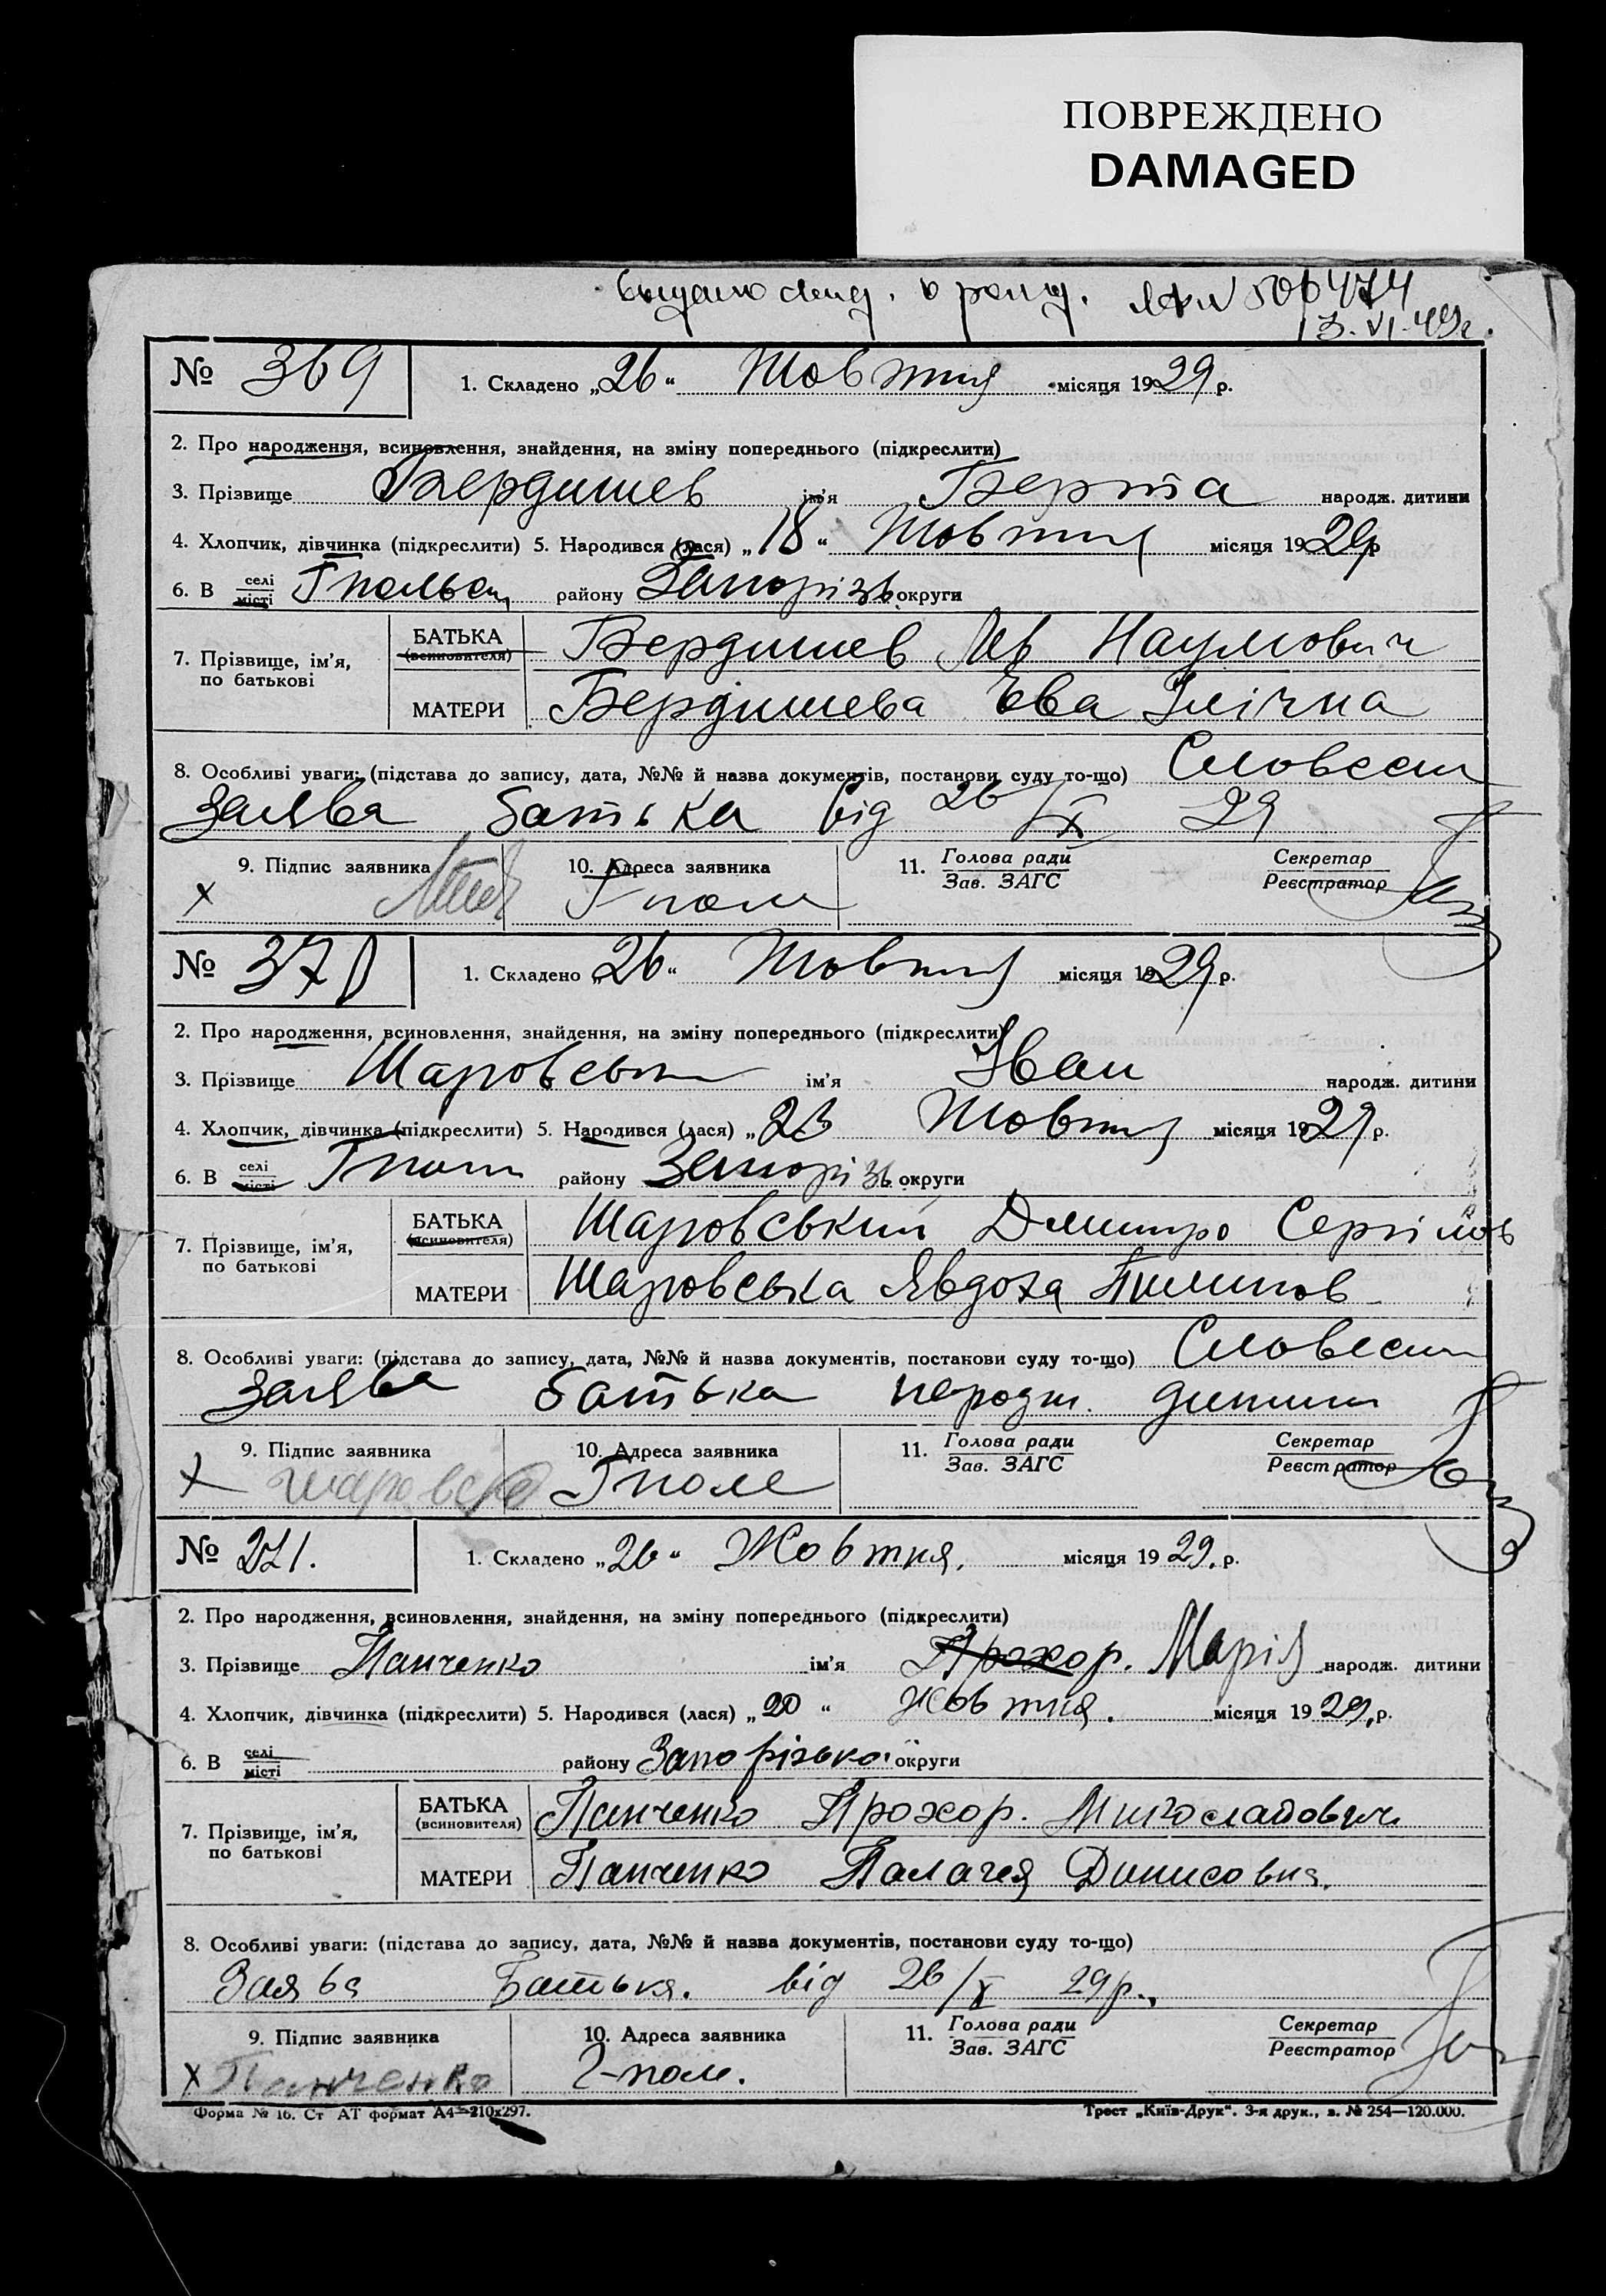 ПОВРЕЖДЕНО
DAMAGED
13.VI.49г.
№ 369
1. Складено „26“ Жовтня місяця 1929 р.
2. Про народження, всиновлення, знайдення, на зміну попереднього (підкреслити)
3. Прізвище Бердишев ім'я Берта народж. дитини
4. Хлопчик, дівчинка (підкреслити) 5. Народився (лася) „18“ Жовтня місяця 1929 р
6. В селі місті Гпольськ району Запорізь округи
7. Прізвище, ім'я, по батькові
БАТЬКА (всиновителя) Бердишев Лев Наумович
МАТЕРИ Бердишева Ева Ілічна
8. Особливі уваги: (підстава до запису, дата, №№ й назва документів, постанови суду то-що) Словесн
Заява батька від 26/X 29
9. Підпис заявника 10. Адреса заявника 11. Голова ради Секретар
Зав. ЗАГС Реєстратор
х Гполе
№ 370
1. Складено „26“ Жовтня місяця 1929 р.
2. Про народження, всиновлення, знайдення, на зміну попереднього (підкреслити)
3. Прізвище Шаровськ ім'я Іван народж. дитини
4. Хлопчик, дівчинка (підкреслити) 5. Народився (лася) „23 Жовтня місяця 1929 р.
6. В селі місті Гпол району Запорізь округи
7. Прізвище, ім'я, по батькові
БАТЬКА (всиновителя) Шаровський Дмитро Сергійов
МАТЕРИ Шаровська Явдоха
8. Особливі уваги: (підстава до запису, дата, №№ й назва документів, постанови суду то-що) Словесн
Заява батька народж. дитини
9. Підпис заявника 10. Адреса заявника 11. Голова ради Секретар
Зав. ЗАГС Реєстратор
х Шаровс Гполе
№ 371.
1. Складено „26“ Жовтня. місяця 1929. р.
2. Про народження, всиновлення, знайдення, на зміну попереднього (підкреслити)
3. Прізвище Панченко ім'я Прохор. Марія народж. дитини
4. Хлопчик, дівчинка (підкреслити) 5. Народився (лася) „20“ Жовтня. місяця 1929. р.
6. В селі місті району Запорізької округи
7. Прізвище, ім'я, по батькові
БАТЬКА (всиновителя) Панченко Прохор.
МАТЕРИ Панченко Палагея Динисовна.
8. Особливі уваги: (підстава до запису, дата, №№ й назва документів, постанови суду то-що)
Заява Батька. від 26/X 29 р.,
9. Підпис заявника 10. Адреса заявника 11. Голова ради Секретар
Зав. ЗАГС Реєстратор
х Панченко Г-поле.
Форма № 16. Ст АТ формат А4—210х297. Трест „Київ-Друк“. 3-я друк., з. № 254—120.000.